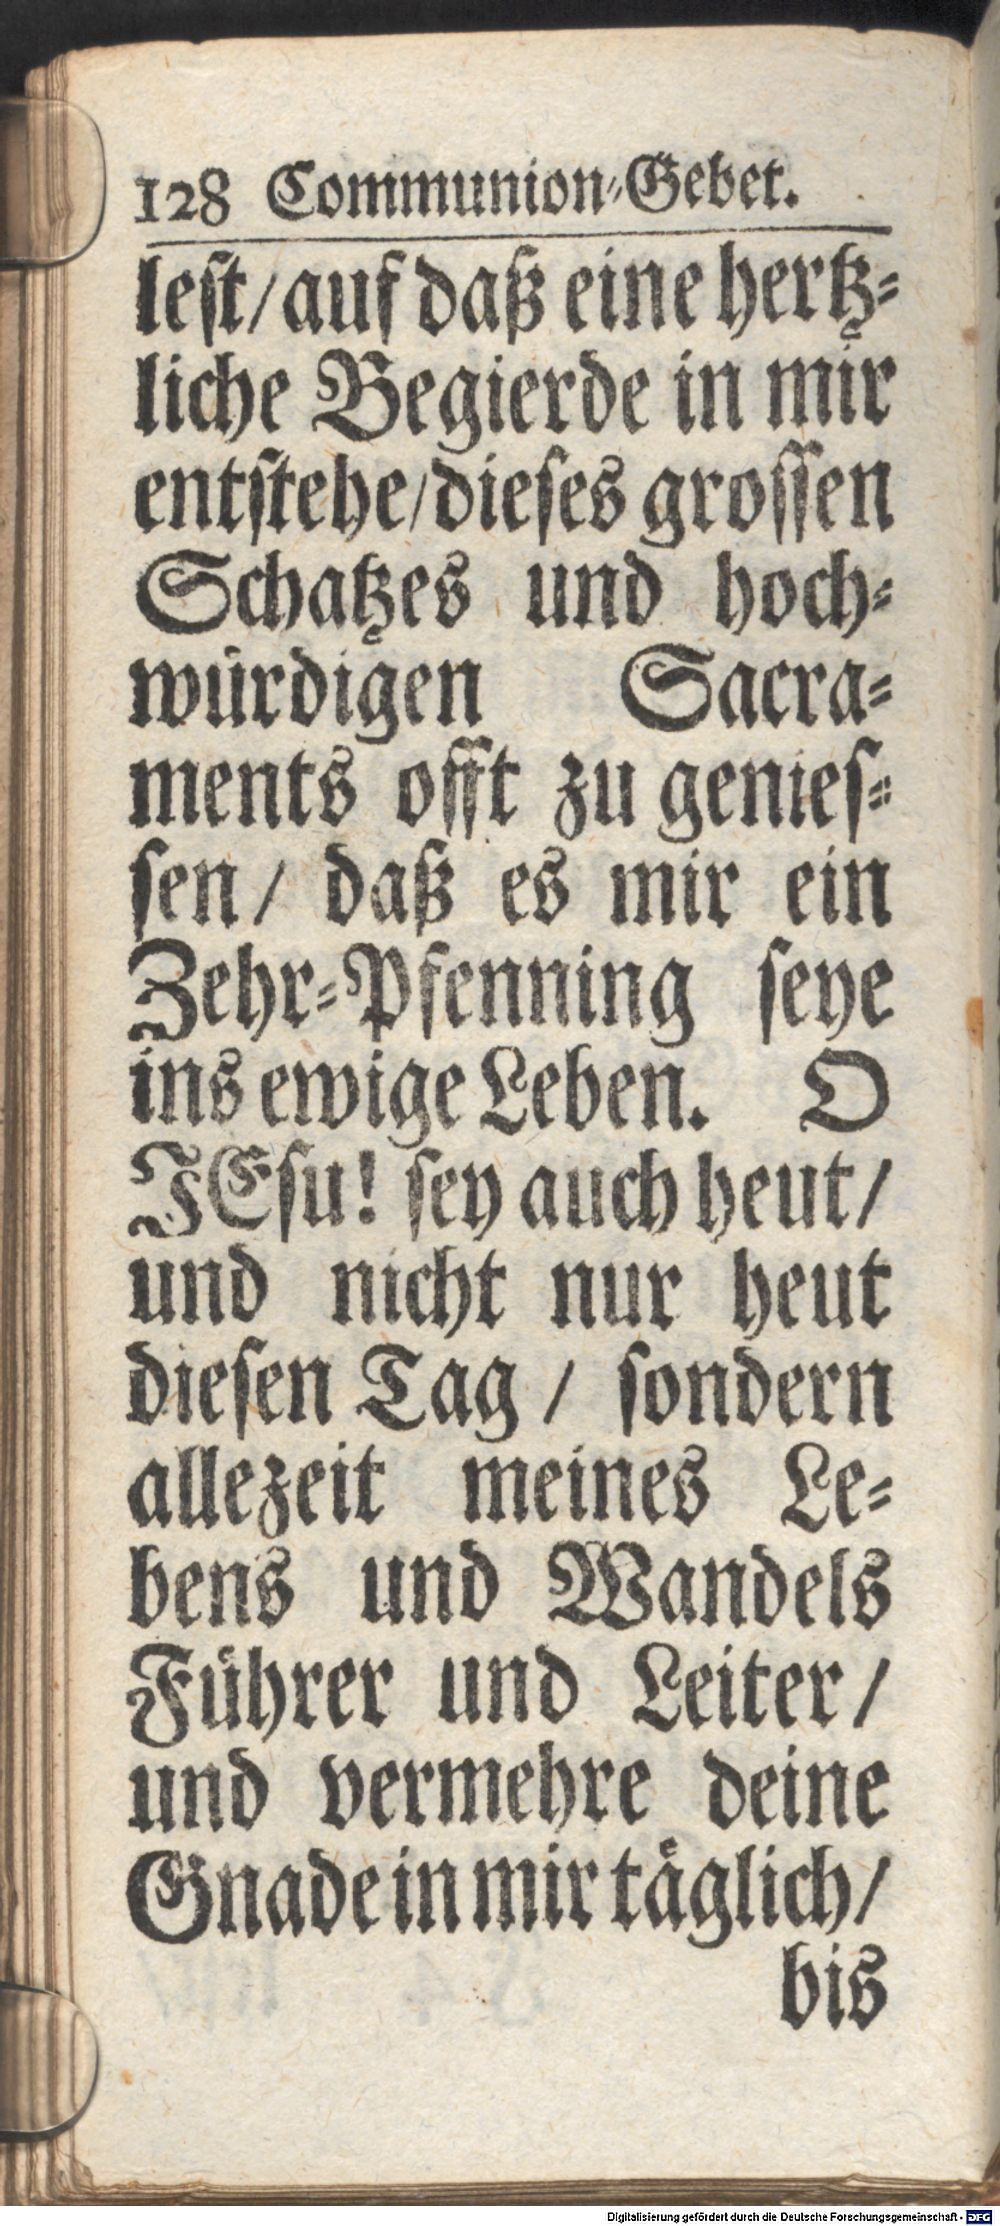 128 Communion-Gebet.
lest/ auf daß eine hertz-
liche Begierde in mir
entstehe/ dieses grossen
Schatzes und hoch-
würdigen Sacra-
ments offt zu genies-
sen/ daß es mir ein
Zehr-Pfenning seye
ins ewige Leben. O
JEsu! sey auch heut/
und nicht nur heut
diesen Tag / sondern
allezeit meines Le-
bens und Wandels
Führer und Leiter/
und vermehre deine
Gnade in mir täglich/
bis
Digitalisierung gefördert durch die Deutsche Forschungsgemeinschaft - DFG